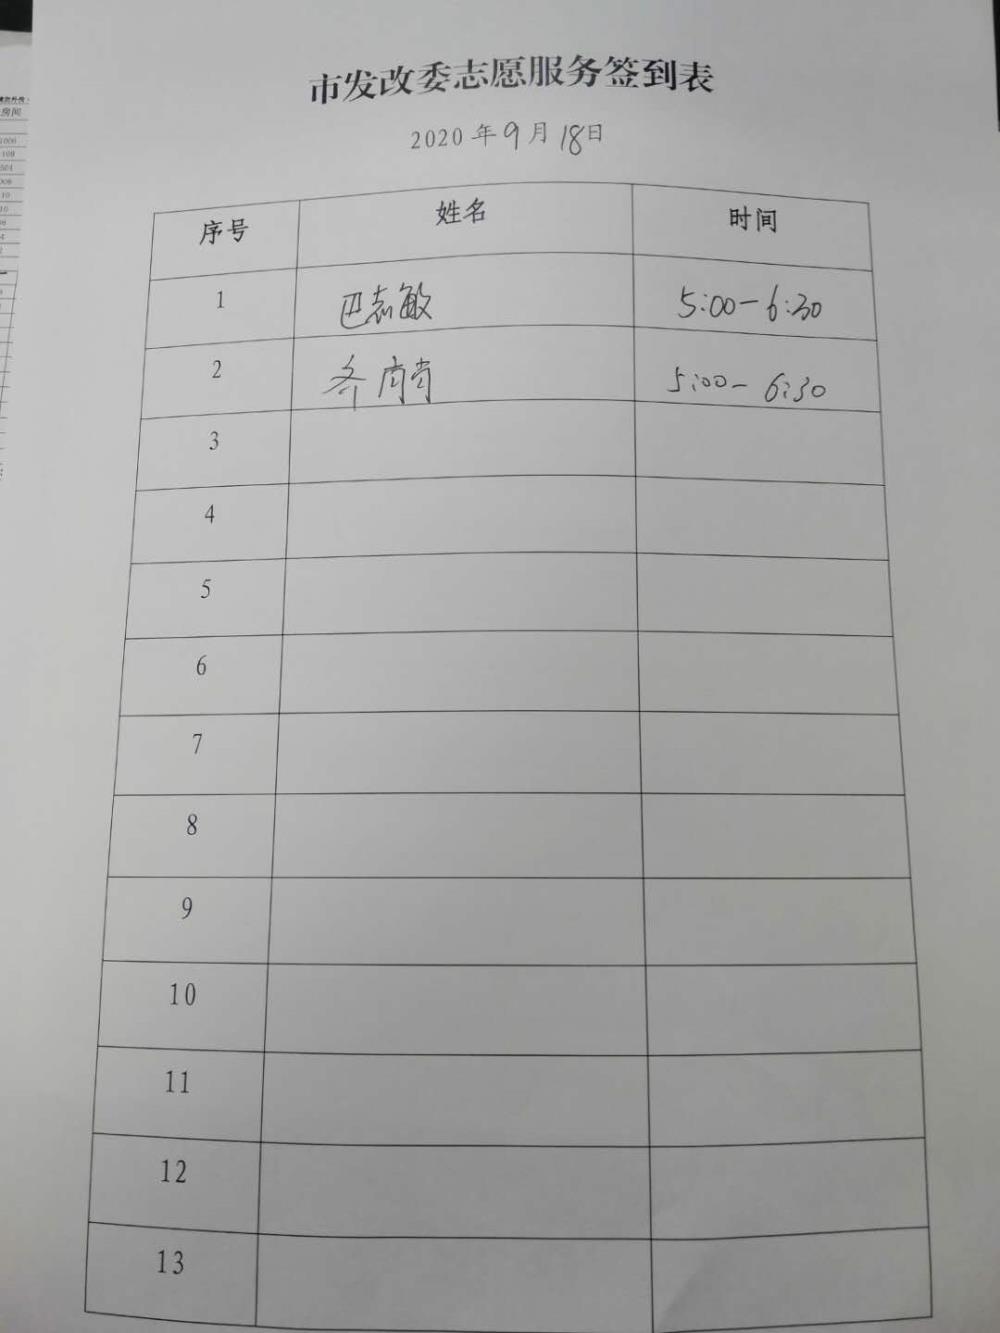 市发改委志愿服务签到表
2020 年 9 月 18 日
序号 姓名 时间
1 巴志敏 5:00-6:30
2 5:00-6:30
3
4
5
6
7
8
9
10
11
12
13
房间